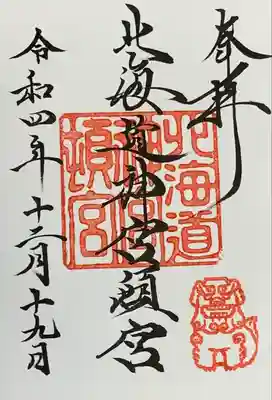 奉拝
北海道神宮頓宮
令和四年十二月十九日
北海道
神宮
頓宮